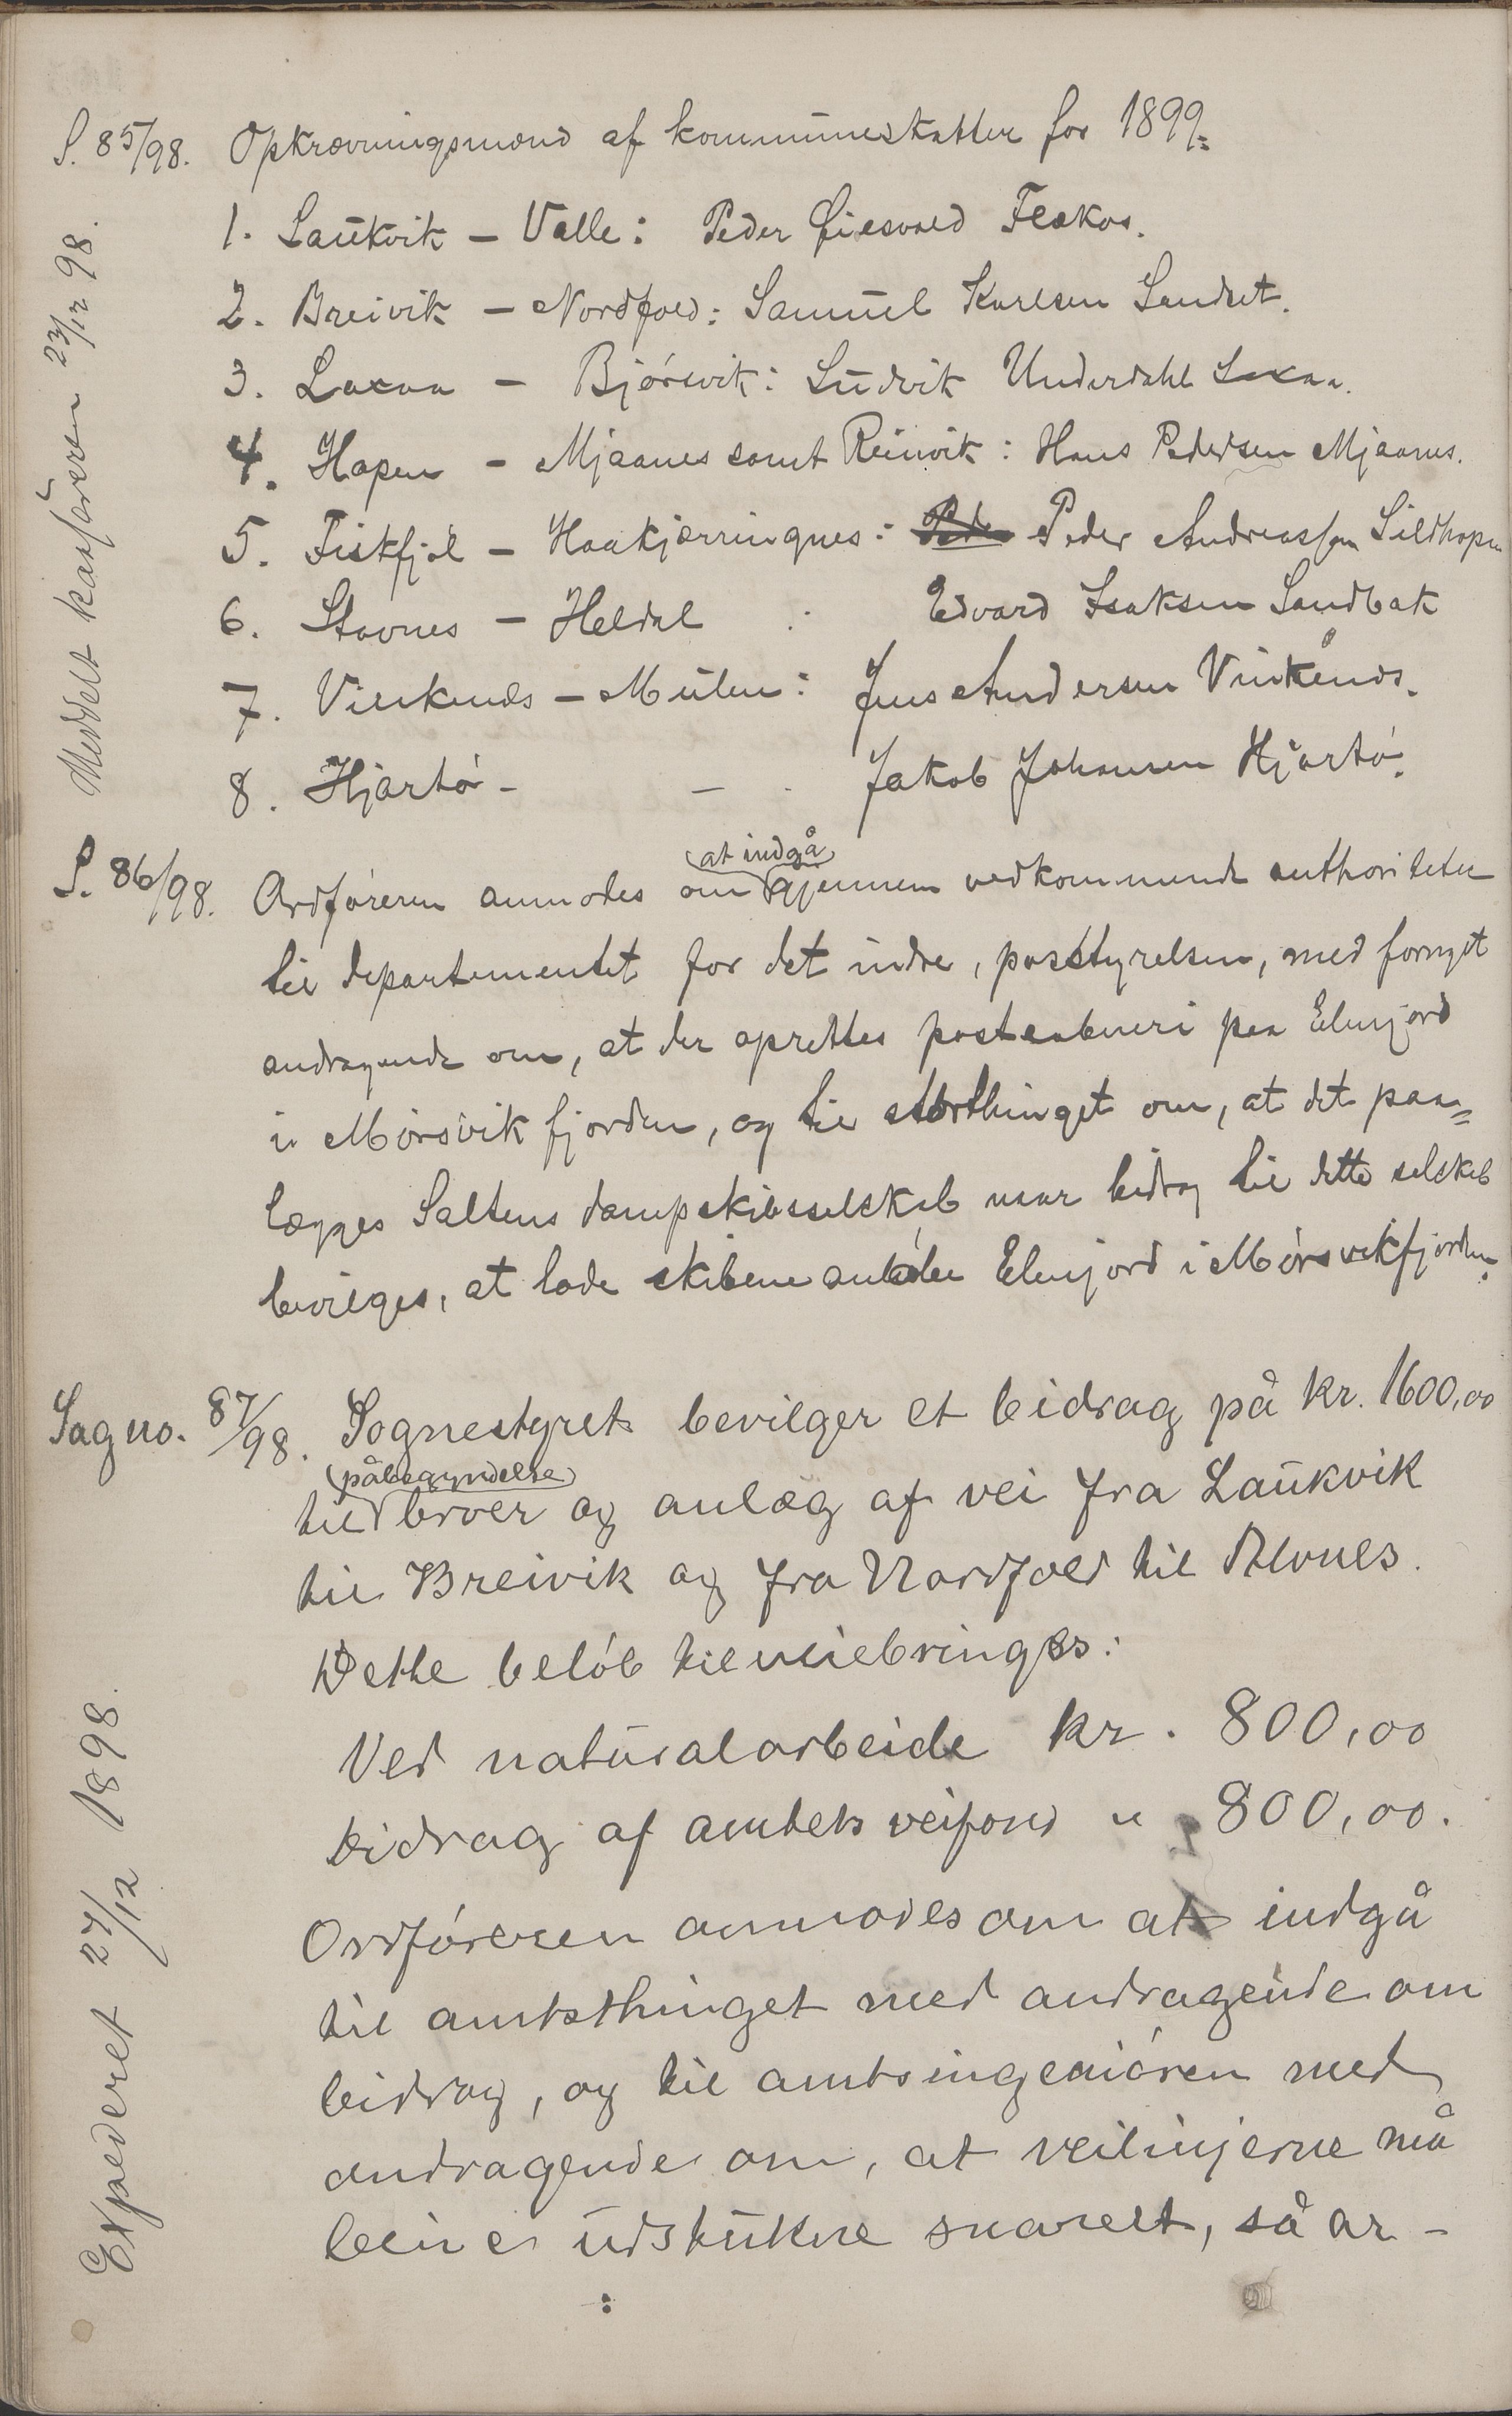 S. 85/98. Opkrævningsmænd af kommuneskatter for 1899:
1. Laukvik - Valle: Peder Fleskos.
2. Breivik - Nordfold: Samuel Karlsen Sandset.
3. Laxaa - Bjørsvik: Ludvik Underdahl Laxaa.
4. Hopen - Mjaanes samt Reinvik: Hans Pedersen Mjaanes.
5. Fiskfjol - Haakjærringnes: Peder Andreassen Sildhopen
6. Stavnes - Heldal : Edvard Isaksen Sandbak
7. Vinkenes - Mulen: Jens Andersen Vinkenes.
8. Hjartø - - . Jakob Johansen Hjartø.
Meddelt kasséreren 23/12 98.
S. 86/98. Ordføreren anmodes om (at indgå) gjennem vedkommende authoriteter
til departementet for det indre, poststyrelsen, med fornyet
andragende om, at der oprettes postaabneri paa Elvejord
i Mørsvikfjorden, og til storthinget om, at det paa=
lægges Saltens dampskibsselskab naar bidrag til dette selskab
bevilges, at lade skibene anløbe Elvejord i Mørsvikfjorden.
Sag no. 87/98. Sognestyret bevilger et bidrag på kr. 1600,00
til (påbegyndelse) broer og anlæg af vei fra Laukvik
til Breivik og fra Nordfold til Alvnes.
Dette beløb tilveiebringes:
Ved naturalarbeide kr. 800,00
bidrag af amtets veifond " 800,00.
Ordføreren anmodes om at indgå
til amtsthinget med andragende om
bidrag, og til amtsingeniøren med
andragende om, at veilinjerne må
blive udstukne snarest, så ar-
Expederet 27/12 1898.